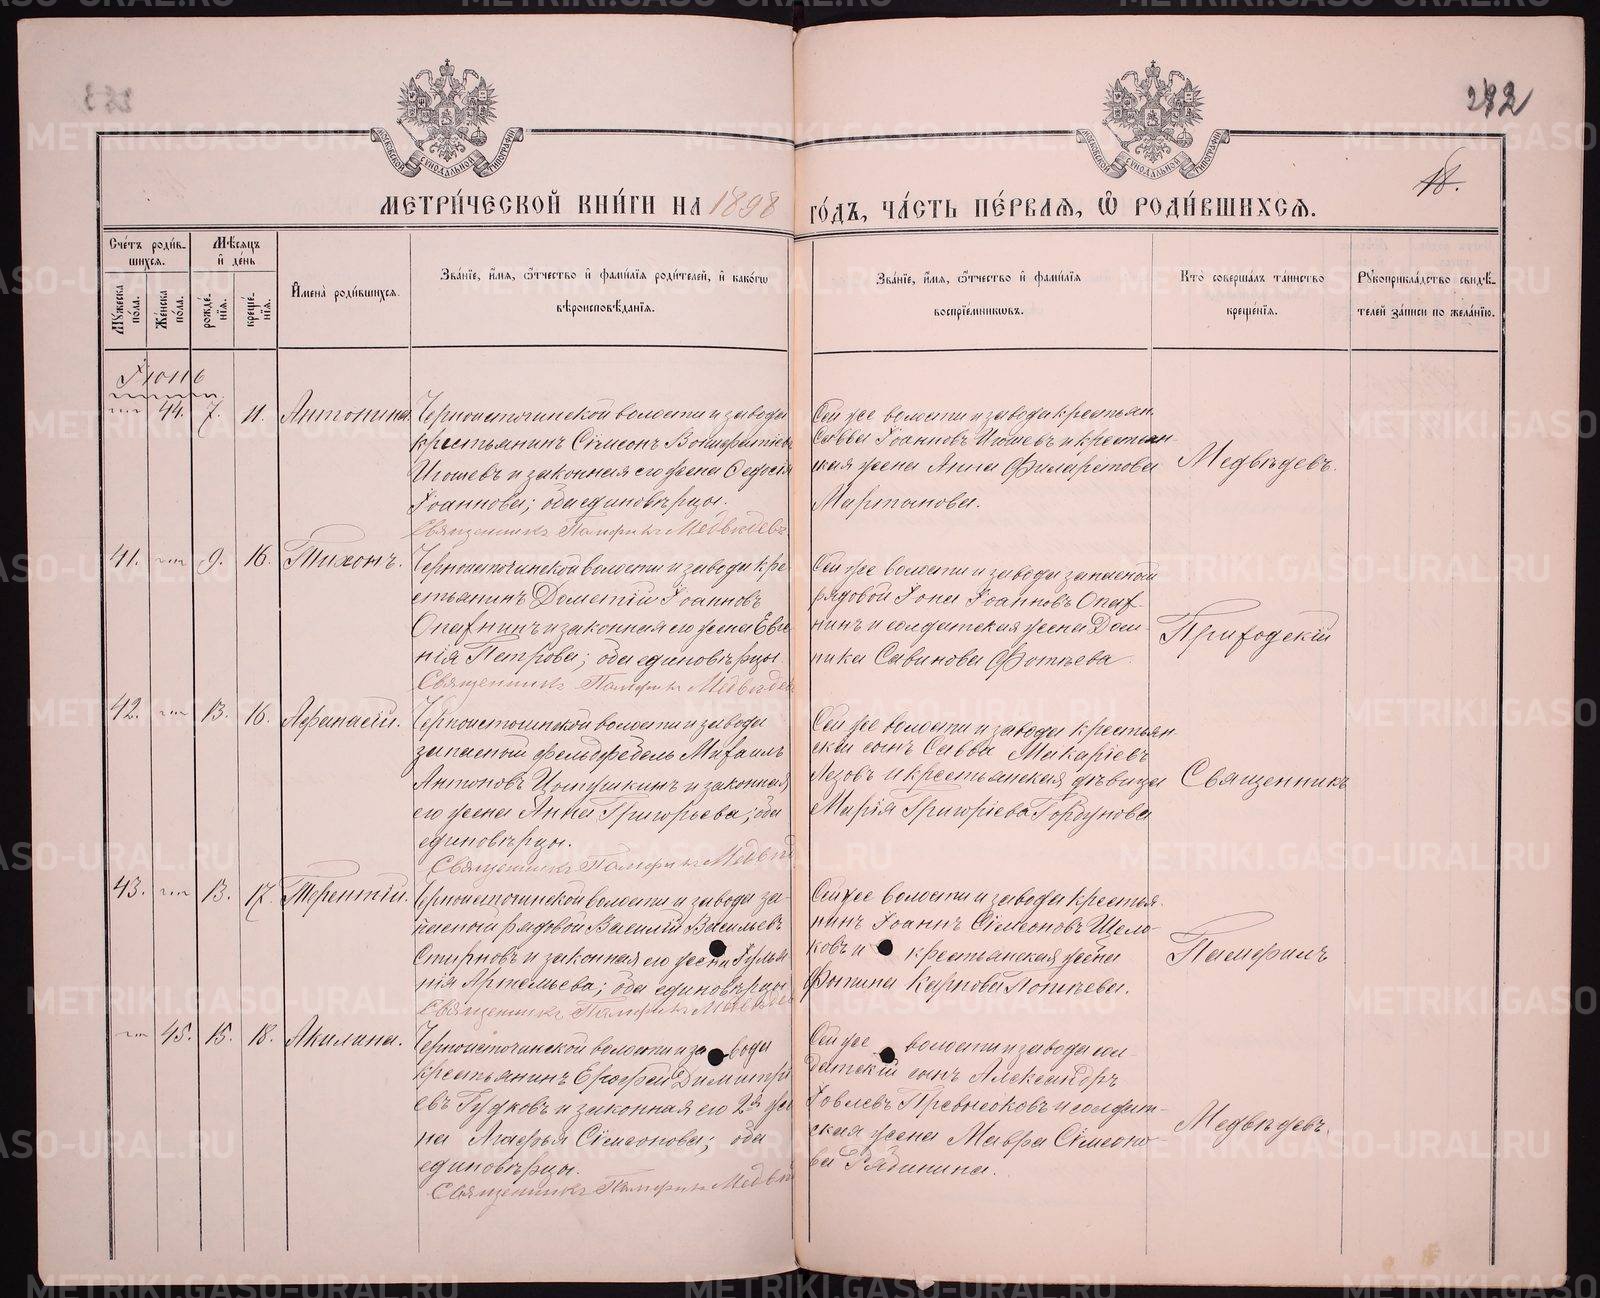 282
18.
МОСКОВСКОЙ СУНОДАЛЬНОЙ ТИПОГРАФІИ
МОСКОВСКОЙ СУНОДАЛЬНОЙ ТИПОГРАФІИ
МЕТРИ́ЧЕСКОЙ КНИ́ГИ НА 1898 ГО́ДЪ, ЧА́СТЬ ПЕ́РВАѦ, Ѡ РОДИ́ВШИХСѦ.
Сче́тъ роди́в-
шихсѧ.
Мѣ́сѧцъ
и҆ де́нь
Мꙋ́жеска по́ла.
Же́нска по́ла.
рожде́нїѧ.
креще́нїѧ.
И҆мена̀ роди́вшихсѧ.
Зва́нїе, и҆́мѧ, ѻ҆́тчество и҆ фами́лїѧ роди́телей, и҆ како́гѡ
вѣроисповѣ́данїѧ.
Зва́нїе, и҆́мѧ, ѻ҆́тчество и҆ фами́лїѧ
воспрїе́мникѡвъ.
Кто̀ соверша́лъ та́инство
креще́нїѧ.
Рꙋкоприкла́дство свидѣ́-
телей за́писи по жела́нїю.
Іюнь
44. 7. 11. Антонина.
Черноисточинской волости и завода
крестьянинъ Сѵмеонъ
Июшевъ и законная его жена Ѳедосія
Іоаннова; оба единовѣрцы.
Священникъ Памфилъ Медвѣдевъ
Той же волости и завода крестьян.
Савва Іоанновъ Июшевъ и крестьян
ская жена Анна Филаретова
Мартьянова.
Медвѣдевъ.
41. 9. 16. Тихонъ.
Черноисточинской волости и завода кре
стьянинъ Дометій Іоанновъ
Опахнинъ и законная его жена Евге
нія Петрова; оба единовѣрцы.
Священникъ Памфилъ Медвѣдев
Той же волости и завода запасной
рядовой Іона Іоанновъ Опах-
нинъ и солдатская жена Дом-
ника Савинова Фотѣева.
Приходскій
42. 13. 16. Афанасій.
Черноисточинской волости и завода
запасной фельдфебель Михаилъ
Антоновъ и законная
его жена Анна Григорьева; оба
единовѣрцы.
Священникъ Памфилъ Медвѣд
Той же волости и завода крестьян-
скій сынъ Савва Макаріевъ
Лезовъ и крестьянская дѣвица
Марія Григоріева Горбунова
Священникъ
43. 13. 17. Терентій.
Черноисточинской волости и завода за-
пасной рядовой Василій Васильевъ
Смирновъ и законная его жена Іулiа
нія Артемьева; оба единовѣрцы
Священникъ Памфилъ Медвѣдев
Той же волости и завода крестья-
нинъ Іоаннъ Сѵмеоновъ Щело-
ковъ и крестьянская жена
Фотина Карпова Потѣева.
Памфилъ
45. 15. 18. Акилина.
Черноисточинской волости и завода
крестьянинъ Ерофей Димитрі
евъ Гудковъ и законная его 2я же
на Агафья Сѵмеонова; оба
единовѣрцы.
Священникъ Памфилъ Медвѣд
Той же волости и завода сол-
датскій сынъ Александръ
Іовлевъ и солдат-
ская жена Мавра Сѵмеоно
ва Рябинина.
Медвѣдевъ.
METRIKI.GASO-URAL.RU